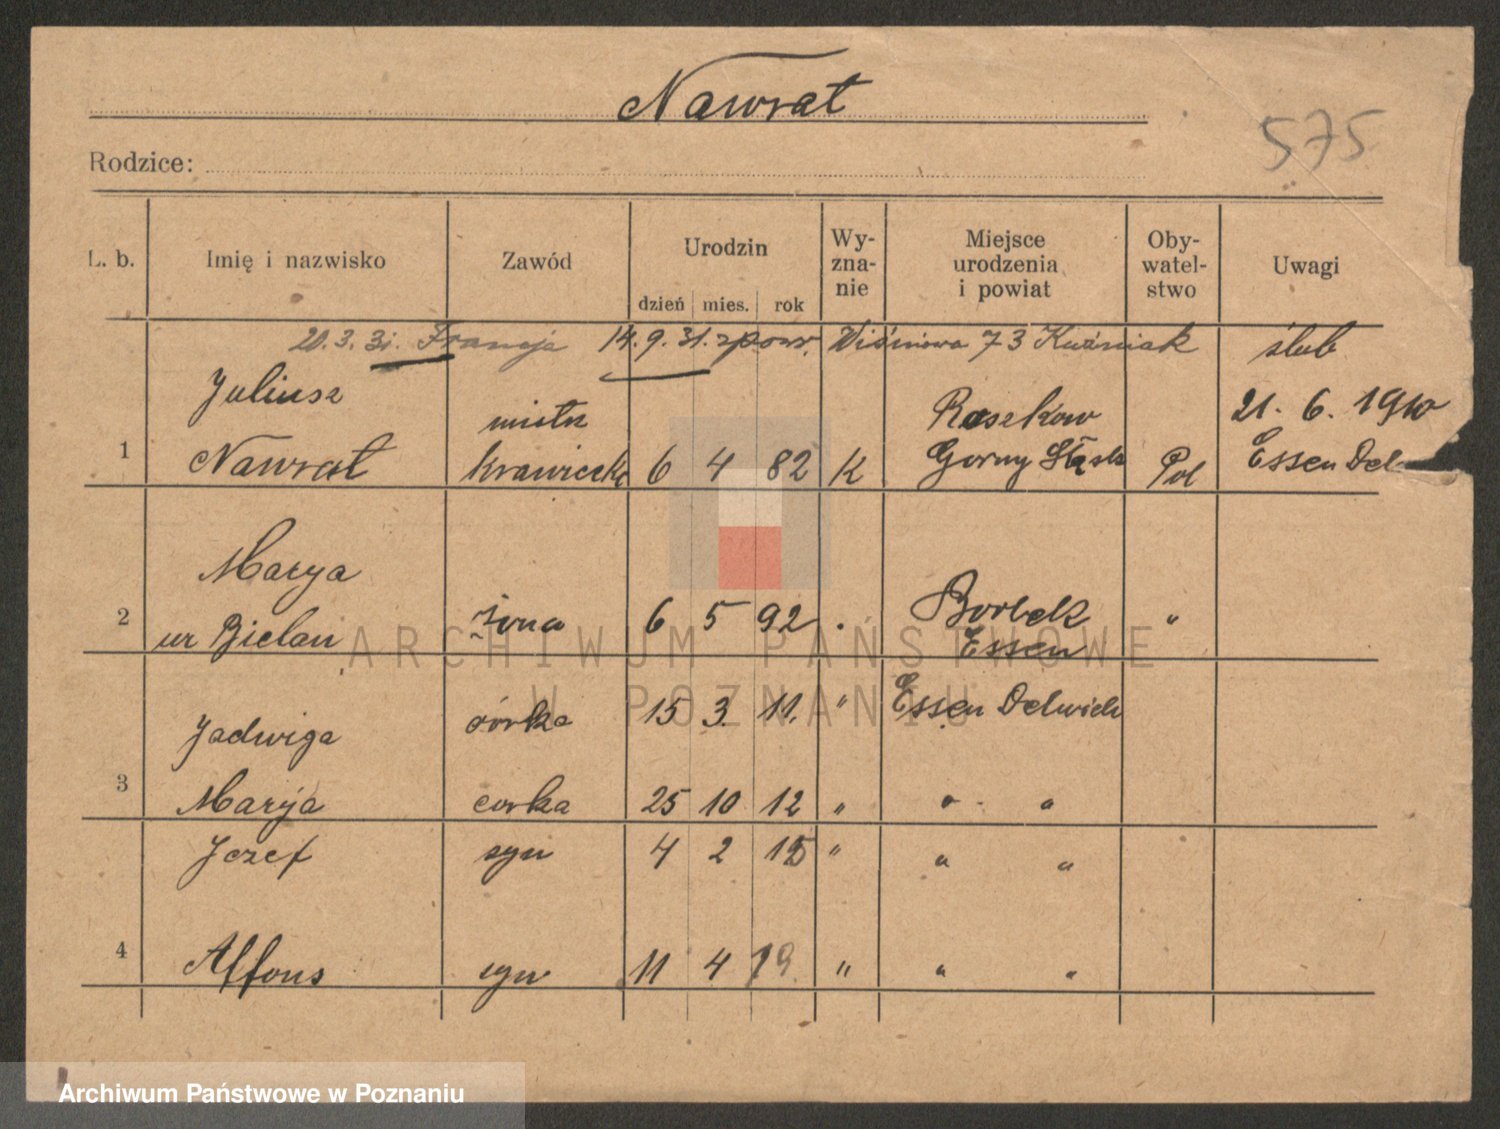 Nawrat
575
Rodzice:
L. b. Imię i nazwisko Zawód Urodzin dzień mies. rok Wy-zna-nie Miejsce urodzenia i powiat Oby-watel-stwo Uwagi
20.3.31. Francja 14.9.31. z pow. Wiśniowa 73 Kuźniak ślub
Juliusz mistrz Roszkow 21. 6. 1910
1 Nawrat krawiecki 6 4 82 K Gorny Śląsk Pol Essen Del
Marya Borbek
2 ur Bielan żona 6 5 92 . Essen "
Jadwiga córka 15 3. 11. " Essen Delwich
3 Marija corka 25 10 12 " " "
Jozef syn 4 2 15 " " "
4 Alfons syn 11 4 19 " " "
ARCHIWUM PAŃSTWOWE
W POZNANIU
Archiwum Państwowe w Poznaniu